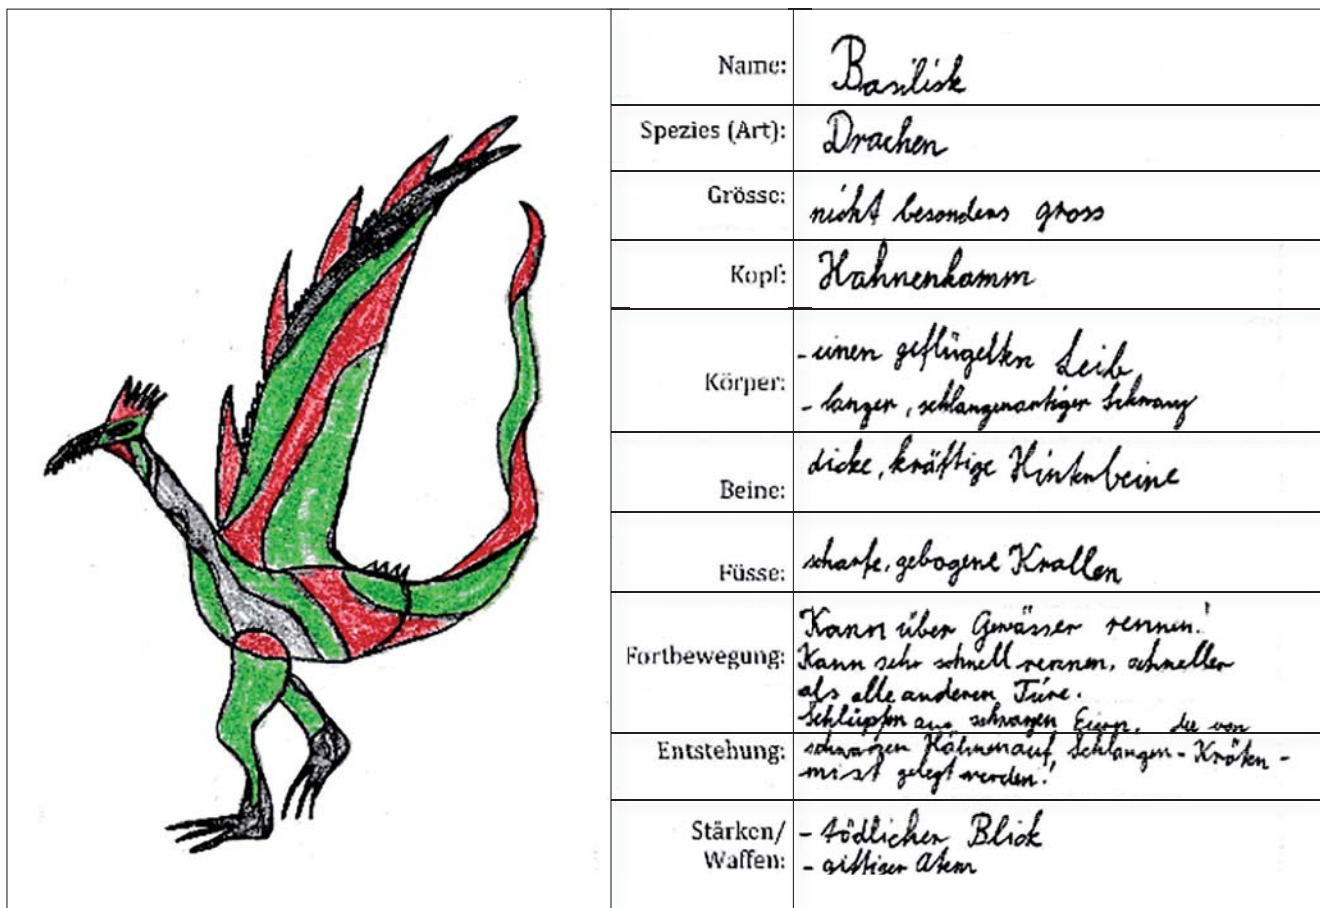 Name: Basilisk
Spezies (Art): Drachen
Grösse: nicht besonders gross
Kopf: Hahnenkamm
Körper: - einen geflügelten Leib
- langer, schlangenartiger Schwanz
Beine: dicke, kräftige Hinterbeine
Füsse: scharfe, gebogene Krallen
Fortbewegung: Kann über Gewässer rennen!
Kann sehr schnell rennen, schneller
als alle anderen Türe.
Entstehung: Schlüpfen aus schwarzen Eiern, die von
schwarzen Hähnen auf, Schlangen - Kröten -
mist gelegt werden!
Stärken/
Waffen: - tödlicher Blick
- giftiger Atem